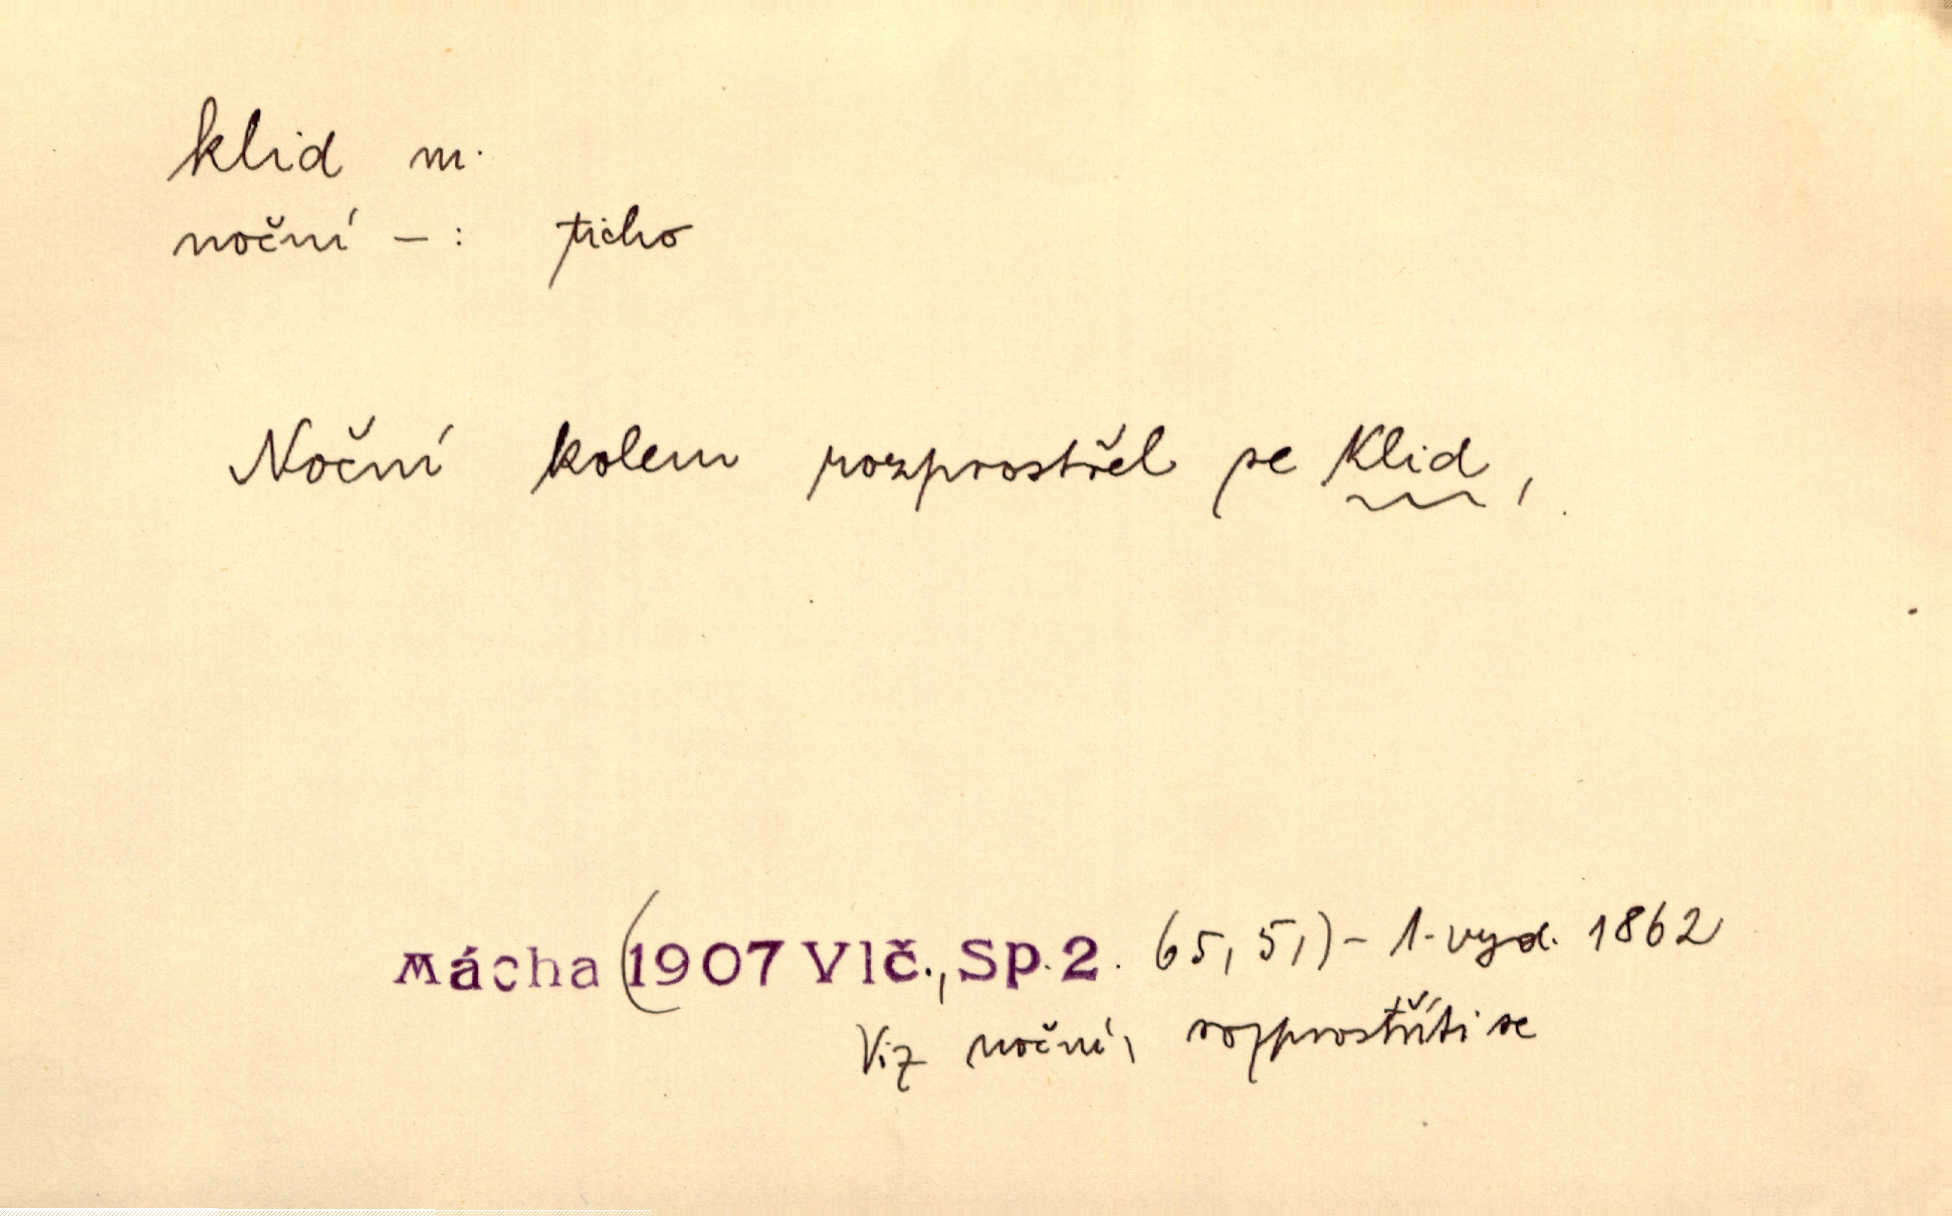 klid m.
noční – : ticho
Noční kolem rozprostřel se Klid,
Mácha (1907 Vlč., Sp. 2. 65, 5,) – 1. vyd. 1862
Viz noční, rozprostříti se